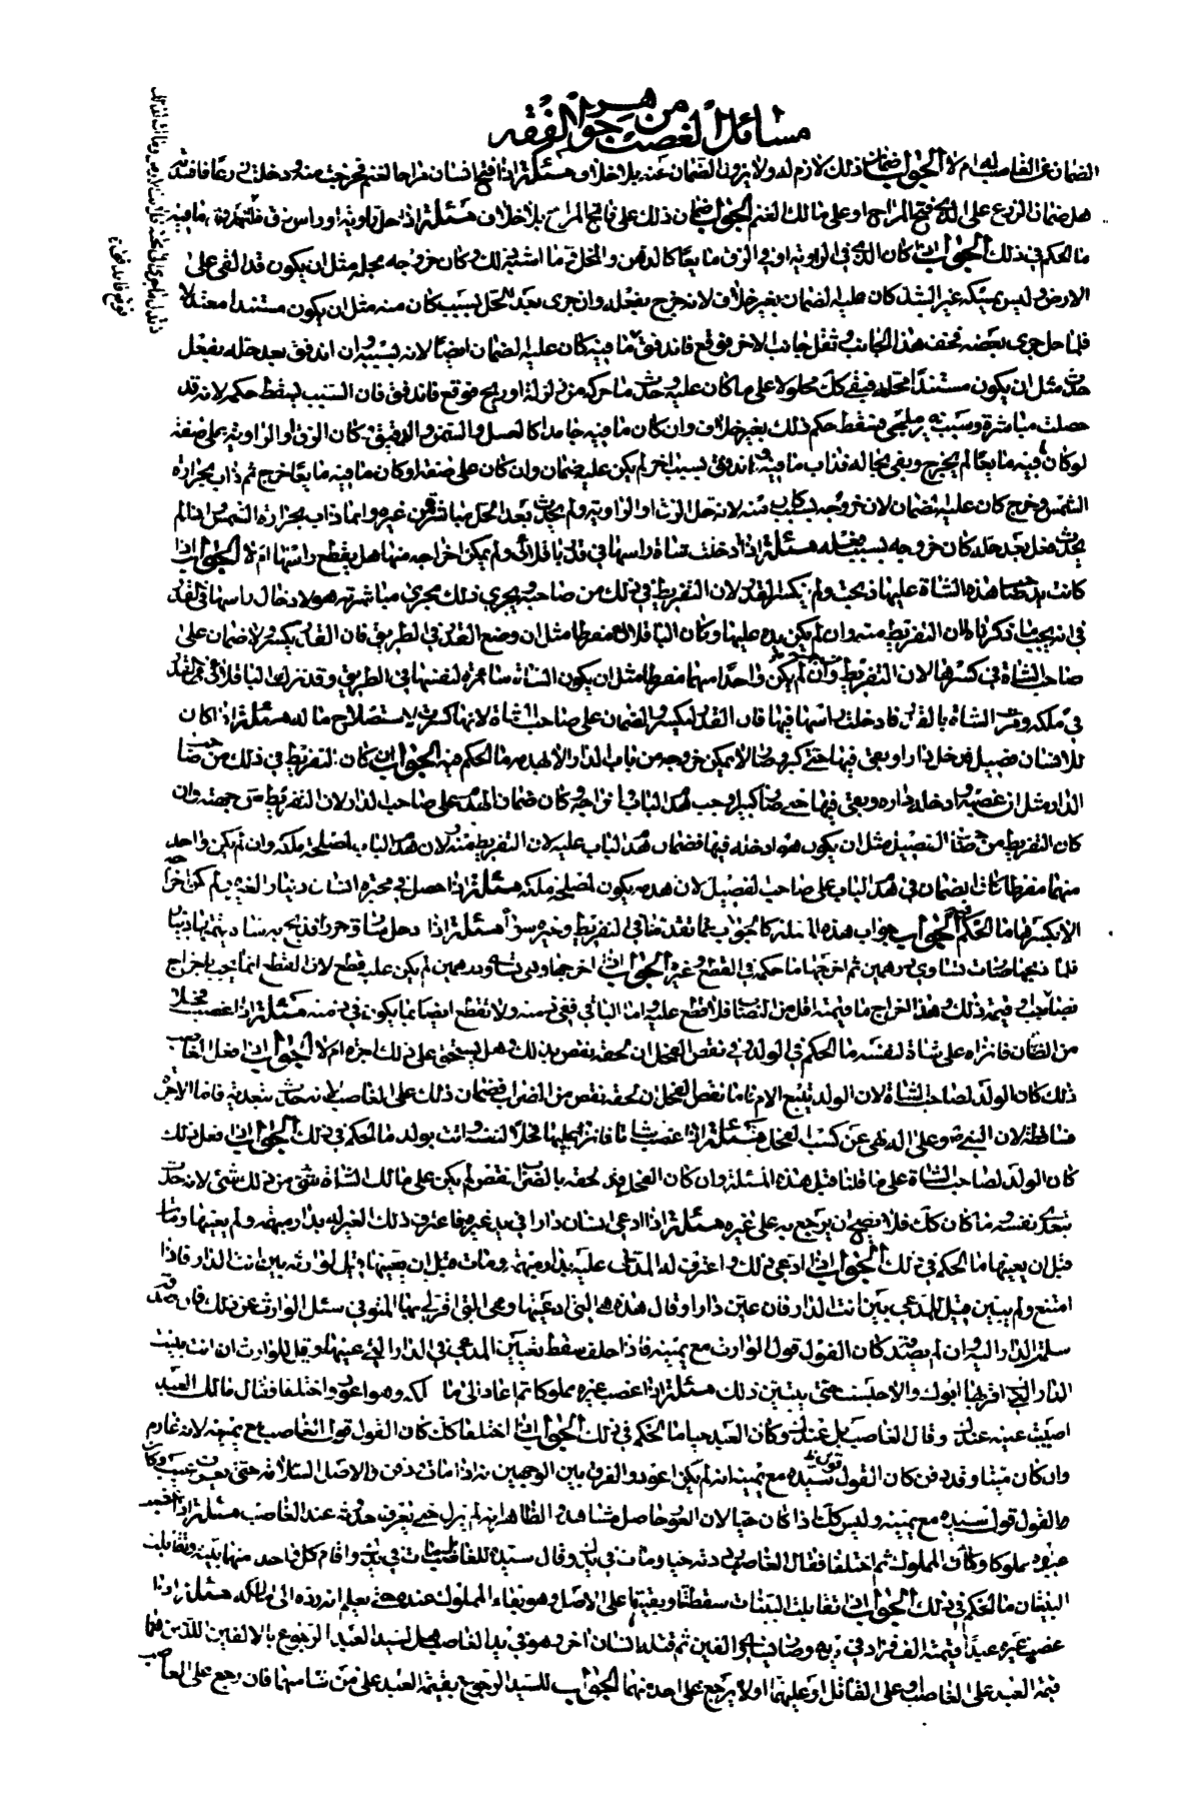 مسائل الغصب من جواهر الفقه
الضمان عن الغاصب له ام لا الجواب ضمان ذلك لازم له ولا يزول الضمان عنه بلا خلاف مسئلة اذا فتح انسان مراحا لغنم فخرجت منه ودخلت زرعا فافسدته
هل ضمان الزرع على الذي فتح المراح او على مالك الغنم الجواب ضمان ذلك على فاتح المراح بلا خلاف مسئلة اذا حل زاوية او راس زق فاندفق ما فيه
ما الحكم في ذلك الجواب ان كان الذي في الزاوية او في الزق مايعا كالدهن والخل وما اشبه ذلك وكان خروجه بحله مثل ان يكون قد القى على
الارض وليس يمسكه غير الشد كان عليه الضمان بغير خلاف لانه خرج بفعله وان جرى بعد الحل بسبب كان منه مثل ان يكون مستندا معتدلا
فلما حل جرى بعضه فخف هذا الجانب وثقل جانب الاخر فوقع فاندفق ما فيه كان عليه الضمان ايضا لانه بسببه وان اندفق بعد حله بفعل
حادث مثل ان يكون مستندا محله فبقى كك محلولا على ما كان عليه وحدث ما حركه من زلزلة او ريح فوقع فاندفق فان السبب يسقط حكمه لانه قد
حصلت مباشرة وسبب غير ملجئ فسقط حكم ذلك بغير خلاف وان كان ما فيه جامدا كالعسل والسمن والدقيق كان الزق او الزاوية على صفة
لو كان فيه مايعا لم يخرج وبقى بحاله فذاب ما فيه و اندفق بسبب اخر لم يكن عليه ضمان وان كان على صفة لو كان ما فيه مايعا خرج ثم ذاب بحرارة
الشمس وخرج كان عليه الضمان لان خروجه بسبب كان منه لانه حل الزق او الزاوية ولم يحدث بعد الحل مباشرة من غيره وانما ذاب بحرارة الشمس اذا لم
يحدث فعل بعد حله كان خروجه بسبب فعله مسئلة اذا ادخلت شاة راسها في قدر باقلاني ولم يمكن اخراجه منها هل يقطع راسها ام لا الجواب اذا
كانت يد صاحب هذه الشاة عليها ذبحت ولم يكسر القدر لان التفريط في ذلك من صاحبها ويجري ذلك مجرى مباشرته هو لادخال راسها في القدر
في انه يجب ما ذكرناه لان التفريط منه وان لم يكن يده عليها وكان الباقلاني مفرطا مثل ان وضع القدر في الطريق فان القدر يكسر ولا ضمان على
صاحب الشاة في كسرها لان التفريط من الباقلاني وان لم يكن واحدا منهما مفرطا مثل ان يكون الشاة سائرة لنفسها في الطريق وقد ترك الباقلاني القدر
في ملكه ومرت الشاة بالقدر فادخلت راسها فيها فان القدر يكسر والضمان على صاحب الشاة لانها كسرت لاستصلاح ماله مسئلة اذا كان
للانسان فصيل فدخل دارا وبقى فيها حتى كبر وصار لا يمكن خروجه من باب الدار الا بهدمه ما الحكم فيه الجواب ان كان التفريط في ذلك من صاحب
الدار مثل ان غصبه وادخله داره وبقى فيها حتى صار كبيرا وجب هدم الباب واخراجه وكان ضمان الهدم على صاحب الدار لان التفريط من جهته وان
كان التفريط من صاحب الفصيل مثل ان يكون هو ادخله فيها فضمان هدم الباب عليه لان التفريط منه ولان هدم الباب لمصلحة ملكه وان لم يكن واحد
منهما مفرطا كان الضمان في هدم الباب على صاحب الفصيل لان هدمه يكون لمصلحة ملكه مسئلة اذا حصل في محبرة انسان دينار لغيره ولم يمكن اخراجه
الا بكسرها ما الحكم فيه الجواب جواب هذه المسئلة كالجواب عما تقدمها في التفريط وغيره سواء مسئلة اذا دخل سارق حرزا فذبح به شاة قيمتها دينار
فلما ذبحها صارت تساوي درهمين ثم اخرجها ما حكمه في القطع وغيره الجواب اذا اخرجها وهي تساوي درهمين لم يكن عليه قطع لان القطع انما يجب باخراج
نصاب او قيمة ذلك وهذا اخراج ما قيمته اقل من النصاب فلا قطع عليه واما الباقي ففي ذمته ولا تقطع ايضا بما يكون في ذمته مسئلة اذا غصب فحلا
من الضان فانزاه على شاة لنفسه ما الحكم في الولد وفي نقص الفحل ان لحقه نقص بذلك وهل يستحق على ذلك اجرة ام لا الجواب اذا فعل الغاصب
ذلك كان الولد لصاحب الشاة لان الولد يتبع الام فاما نقص الفحل ان لحقه نقص من الضراب فضمان ذلك على الغاصب لانه حادث بتعديه فاما الاجرة
فساقطة لان النبي صلى الله عليه وآله نهى عن كسب الفحل مسئلة اذا غصب شاة فانزى عليها فحلا لنفسه واتت بولد ما الحكم في ذلك الجواب اذا فعل ذلك
كان الولد لصاحب الشاة على ما قلنا قبل هذه المسئلة وان كان الفحل قد لحقه بالضراب نقص لم يكن على مالك الشاة شئ من ذلك لانه حدث
بتعدي نفسه وما كان كك فلا يصح ان يرجع به على غيره مسئلة اذا ادعى انسان دارا في يد غيره فاعترف ذلك الغير له بدار مبهمة ولم يعينها ومات
قبل ان يعينها ما الحكم في ذلك الجواب اذا ادعى ذلك واعترف له المدعى عليه بدار مبهمة ومات قبل ان يعينها قيل لوارثه بين انت الدار فاذا
امتنع ولم يبين قيل للمدعي بين انت الدار فان عين دارا وقال هذه هي التي ادعيتها وهي التي اقر لي بها المتوفى سئل الوارث عن ذلك فان صدقه
سلم الدار اليه وان لم يصدقه كان القول قول الوارث مع يمينه فاذا حلف سقط تعيين المدعي في الدار التي عينها وقيل للوارث ان انت بينت
الدار التي اقر بها ابوك والا حبست حتى يبين ذلك مسئلة اذا غصب غيره مملوكا ثم اعاده الى مالكه وهو اعور واختلفا فقال مالك العبد
اصيبت عينه عندك وقال الغاصب بل عندك وكان العبد حيا ما الحكم في ذلك الجواب اذا اختلفا كك كان القول قول الغاصب مع يمينه لانه غارم
وان كان ميتا وقد دفن كان القول قول سيده مع يمينه انه لم يكن اعور والفرق بين الوجهين انه اذا مات ودفن فالاصل السلامة حتى يعرف عيب وكان
القول قول سيده مع يمينه وليس كك اذا كان حيا لان العور حاصل شاهد والظاهر انه لم يزل حتى يعرف حدوثه عند الغاصب مسئلة اذا غصب
عبدا مملوكا وكان المملوك ثم اختلفا فقال الغاصب رددته حيا ومات في يدك وقال سيده للغاصب بل مات في يدك واقام كل واحد منهما بينة وتقابلت
البينتان ما الحكم في ذلك الجواب اذا تقابلت البينات سقطتا وبقينا على الاصل وهو بقاء المملوك عنده حتى يعلم انه رده الى مالكه مسئلة اذا
غصب غيره عبدا قيمته الف فزاد في يده وصار يساوي الفين ثم قتله انسان اخر وهو في يد الغاصب هل لسيد العبد الرجوع بالالفين اللذين هما
قيمة العبد على الغاصب او على القاتل او عليهما او لا يرجع على احد منهما الجواب للسيد الرجوع بقيمة العبد على من شاء منهما فان رجع على الغاصب